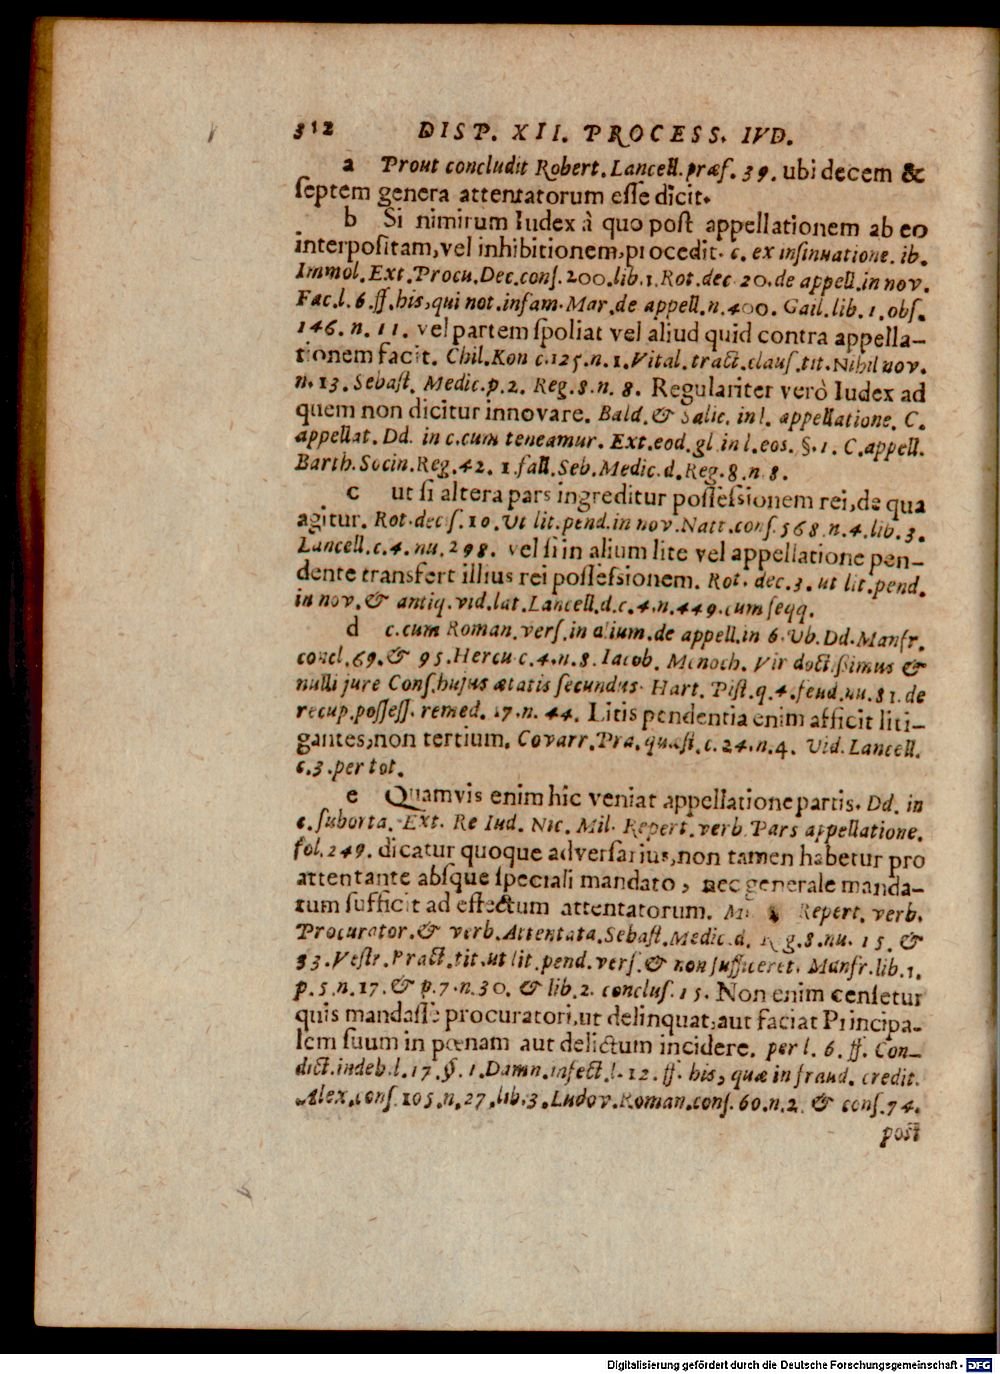 312 DISP. XII. PROCESS. IVD.
a Prout concludit Robert. Lancell. præf. 39. ubi decem &
ſeptem genera attentatorum eſſe dicit.
b Si nimirum Iudex à quo poſt appellationem ab eo
interpoſitam, vel inhibitionem, procedit. c. ex inſinuatione. ib.
Immol. Ext. Procu. Dec. conſ. 200. lib. 1. Rot. dec. 20. de appell. in nov.
Fac. l. 6. ff. his, qui not. infam. Mar. de appell. n. 400. Gail. lib. 1. obſ.
146. n. 11. vel partem ſpoliat vel aliud quid contra appella-
tionem facit. Chil. Kon c. 125. n. 1. Vital. tract. clauſ. tit. Nihil nov.
n. 13. Sebaſt. Medic. p. 2. Reg. 8. n. 8. Regulariter verò Iudex ad
quem non dicitur innovare. Bald. & Salic. in l. appellatione. C.
appellat. Dd. in c. cum teneamur. Ext. eod. gl. in l. eos. §. 1. C. appell.
Barth. Socin. Reg. 42. 1. fall. Seb. Medic. d. Reg. 8. n. 8.
c ut ſi altera pars ingreditur poſſeſsionem rei, de qua
agitur. Rot. deciſ. 10. Ut lit. pend. in nov. Natt. conſ. 568. n. 4. lib. 3.
Lancell. c. 4. nu. 298. vel ſi in alium lite vel appellatione pen-
dente transfert illius rei poſſeſsionem. Rot. dec. 3. ut lit. pend.
in nov. & antiq. vid. lat. Lancell. d. c. 4. n. 449. cum ſeqq.
d c. cum Roman. verſ. in alium. de appell. in 6. Ub. Dd. Manfr.
concl. 69. & 95. Hercu. c. 4. n. 8. Iacob. Menoch. Vir doctiſsimus &
nulli jure Conſ. hujus ætatis ſecundus. Hart. Piſt. q. 4. feud. nu. 81. de
recup. poſſeſſ. remed. 17. n. 44. Litis pendentia enim afficit liti-
gantes, non tertium. Covarr. Pra. quæſt. c. 24. n. 4. Vid. Lancell.
c. 3. per tot.
e Quamvis enim hic veniat appellatione partis. Dd. in
c. ſuborta. Ext. Re Iud. Nic. Mil. Repert. verb. Pars appellatione.
fol. 249. dicatur quoque adverſarius, non tamen habetur pro
attentante abſque ſpeciali mandato, nec generale manda-
tum ſufficit ad effectum attentatorum. Repert. verb.
Procurator. & verb. Attentata. Sebaſt. Medic. d. Reg. 8. nu. 15. &
33. Veſtr. Pract. tit. ut lit. pend. verſ. & non ſufficeret. Manfr. lib. 1.
p. 5. n. 17. & p. 7. n. 30. & lib. 2. concluſ. 15. Non enim cenſetur
quis mandaſſe procuratori, ut delinquat, aut faciat Principa-
lem ſuum in pœnam aut delictum incidere. per l. 6. ff. Con-
dict. indeb. l. 17. §. 1. Damn. infect. l. 12. ff. his, quæ in fraud. credit.
Alex. conſ. 105. n. 27. lib. 3. Ludov. Roman. conſ. 60. n. 2. & conſ. 74.
poſt
Digitalisierung gefördert durch die Deutsche Forschungsgemeinschaft - DFG